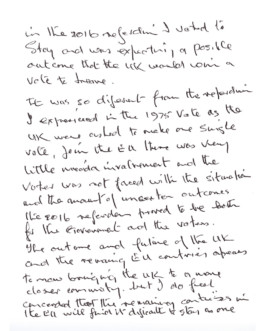 in the 2016 referendum I voted to
Stay and was expecting a possible
outcome that the UK would win a
vote to
It was so different from the referendum
I experienced in the 1975 Vote as the
UK were asked to make one single
vote, Join the EU there was very
little media involvement and the
Voter was not faced with the situation
and the amount of uncertain outcomes
the 2016 referendum proved to be both
for the Government and the voters.
The outcome and future of the UK
and the remaining EU countries appears
to now bringing the UK to a more
closer community. but I do feel
concerned that the remaining countries in
the EU will find it difficult to stay as one